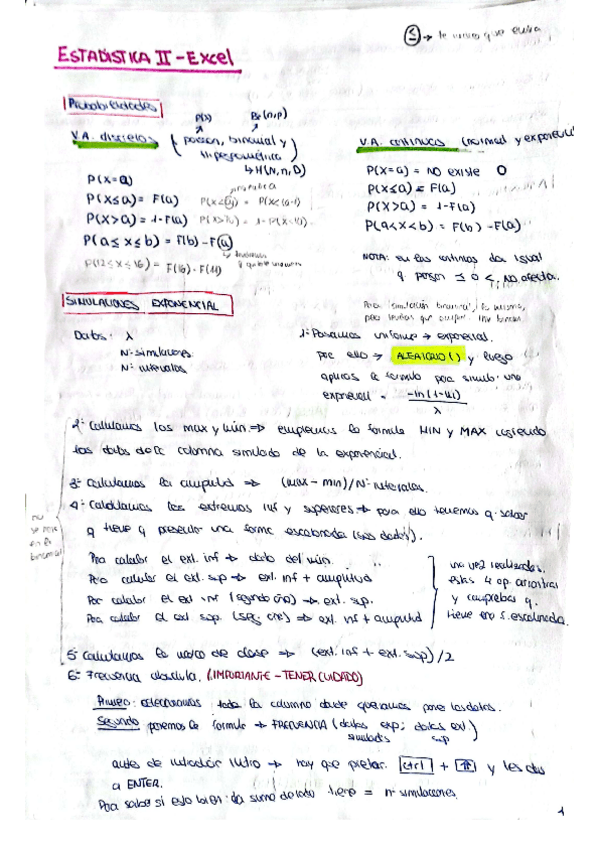 ≤ → lo unico que
ESTADÍSTICA II - Excel
Probabilidades
P(λ) Be(n,p)
V.A. discretas (poisson, binomial y
hipergeométrica)
→ H(N, n, D)
P(X=a)
P(X≤a) = F(a)
P(X>a) = 1-F(a)
P(a≤x≤b) = F(b) - F(a)
P(12≤x≤16) = F(16) - F(11)
V.A. continuas (normal y exponencial
P(X=a) = NO existe 0
P(X≤a) = F(a)
P(X>a) = 1-F(a)
P(a<x<b) = F(b) - F(a)
NOTA: en las continuas da igual
q pongan ≤ o <, NO afecta.
SIMULACIONES EXPONENCIAL
Para simulación binomial, lo mismo,
Datos: λ
Nº simulaciones
Nº intervalos
1º Pasamos uniforme → exponencial.
por ello → ALEATORIO() y luego
aplicas la formula para simular una
exponencial = -ln(1-ui)/λ
2º Calculamos los max y min → empleamos la formula MIN y MAX cogiendo
los datos de la columna simulado de la exponencial.
3º Calculamos la amplitud → (max - min)/Nº intervalos.
4º Calculamos los extremos inf y superiores → para ello tenemos q saber
q tiene q presentar una forma escalonada (sus dados).
no
se hace
en la
binomial
Para calcular el ext. inf → dato del min.
Para calcular el ext. sup → ext. inf + amplitud
Para calcular el ext inf (segundo) → ext. sup.
Para calcular el ext sup. → ext. inf + amplitud
una vez realizadas
estas 4 op. arrastrar
y compruebas q.
tiene una f. escalonada.
5º Calculamos la marca de clase → (ext. inf + ext. sup)/2
6º Frecuencia absoluta. (IMPORTANTE - TENER CUIDADO)
Primero: seleccionamos toda la columna donde queramos poner los datos.
Segundo ponemos la formula → FRECUENCIA (datos exp; datos ext.)
simulados sup
antes de → hay que pretar. ctrl + ⇧ y les das
a ENTER.
Para saber si esto bien: da suma de todo tiene = nº simulaciones.
1